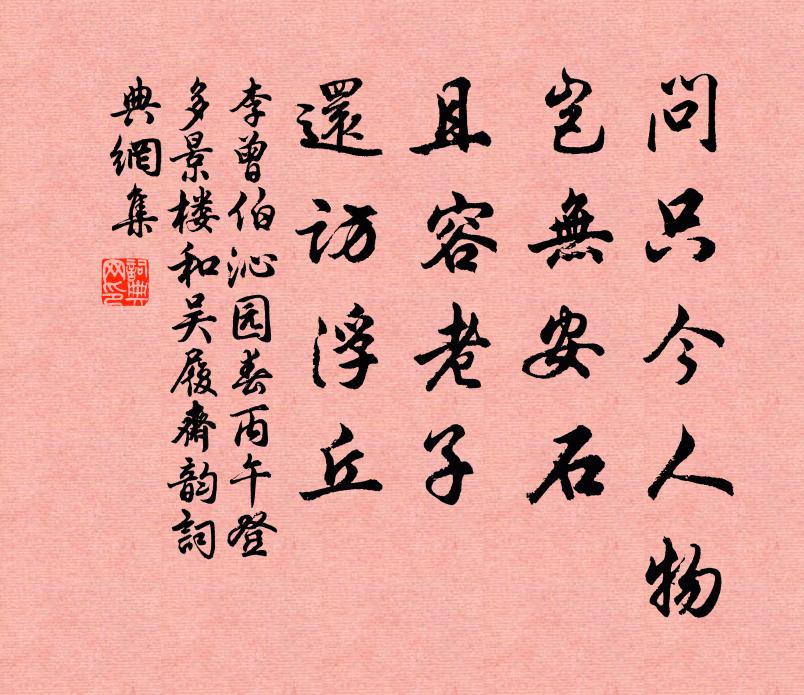 問只今人物
岂無安石
且容老子
還访浮丘
李曾伯沁园春丙午登
多景楼和吴履齋韵詞
典網集
詞典
网印